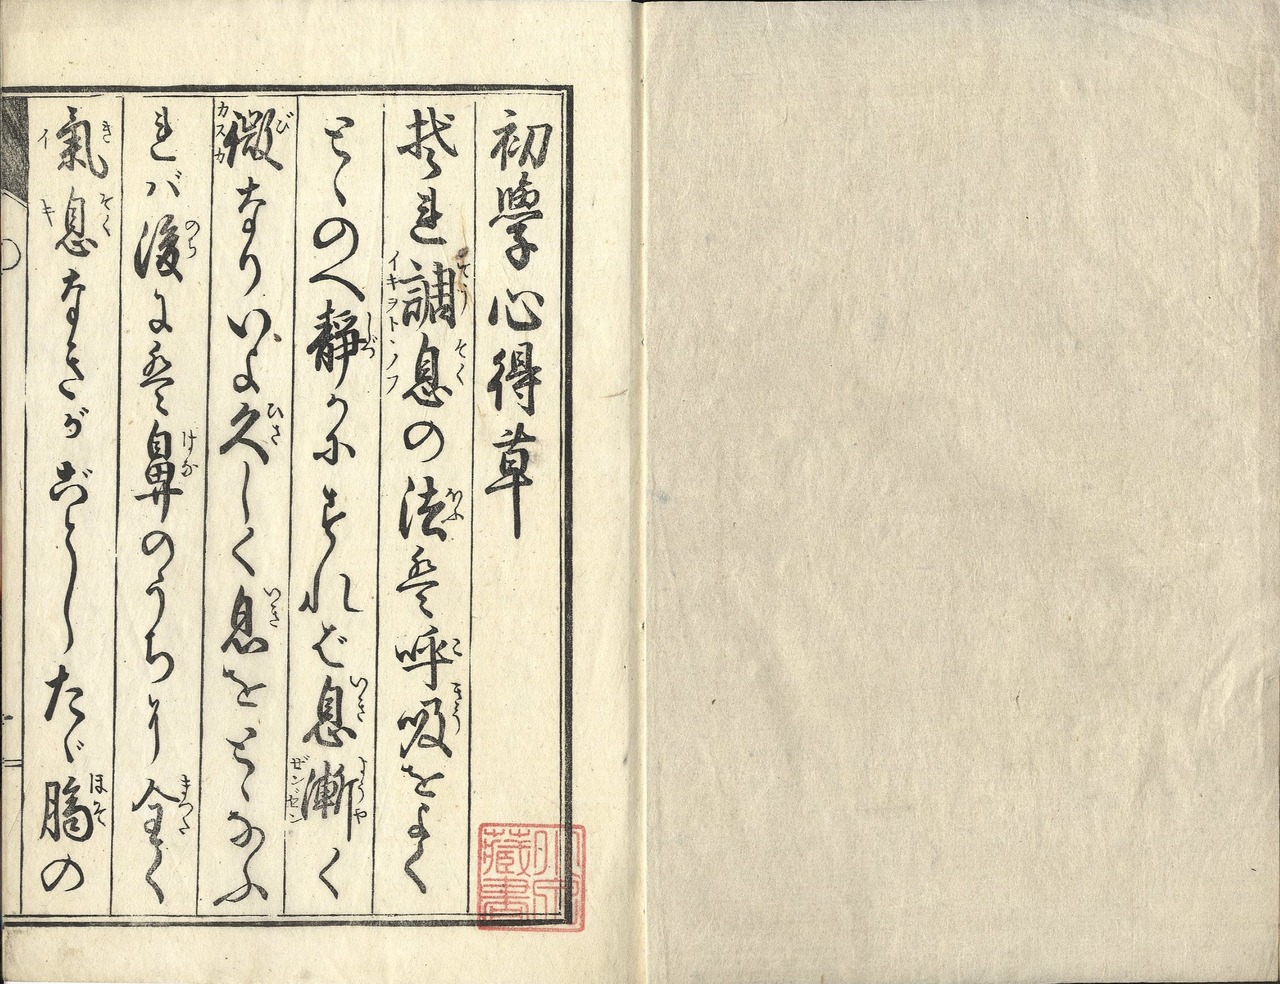 初學心得草
抑是調息の法は呼吸をよく
とゝのへ靜かにすれば息漸く
微なりいよ久しく息をとゝなふ
れバ後には鼻のうちり全く
氣息なきがごとしたゞ臍の